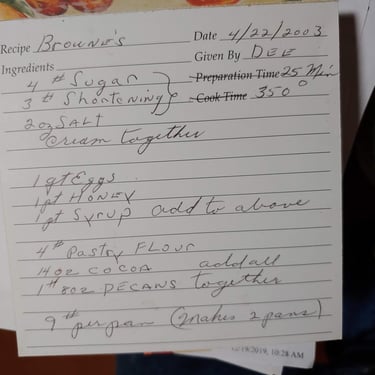 Recipe Brownie's Date 4/22/2003
Given By DEE
Ingredients
4 # Sugar Preparation Time 25 Min
3 # Shortening Cook Time 350°
2 oz SALT
Cream together
1 qt Eggs
1 pt HONEY
1 pt Syrup add to above
4 # Pastry FLOUR
14 oz COCOA add all
1 # 8oz PECANS together
9 # per pan (makes 2 pans)
12/19/2019, 10:28 AM